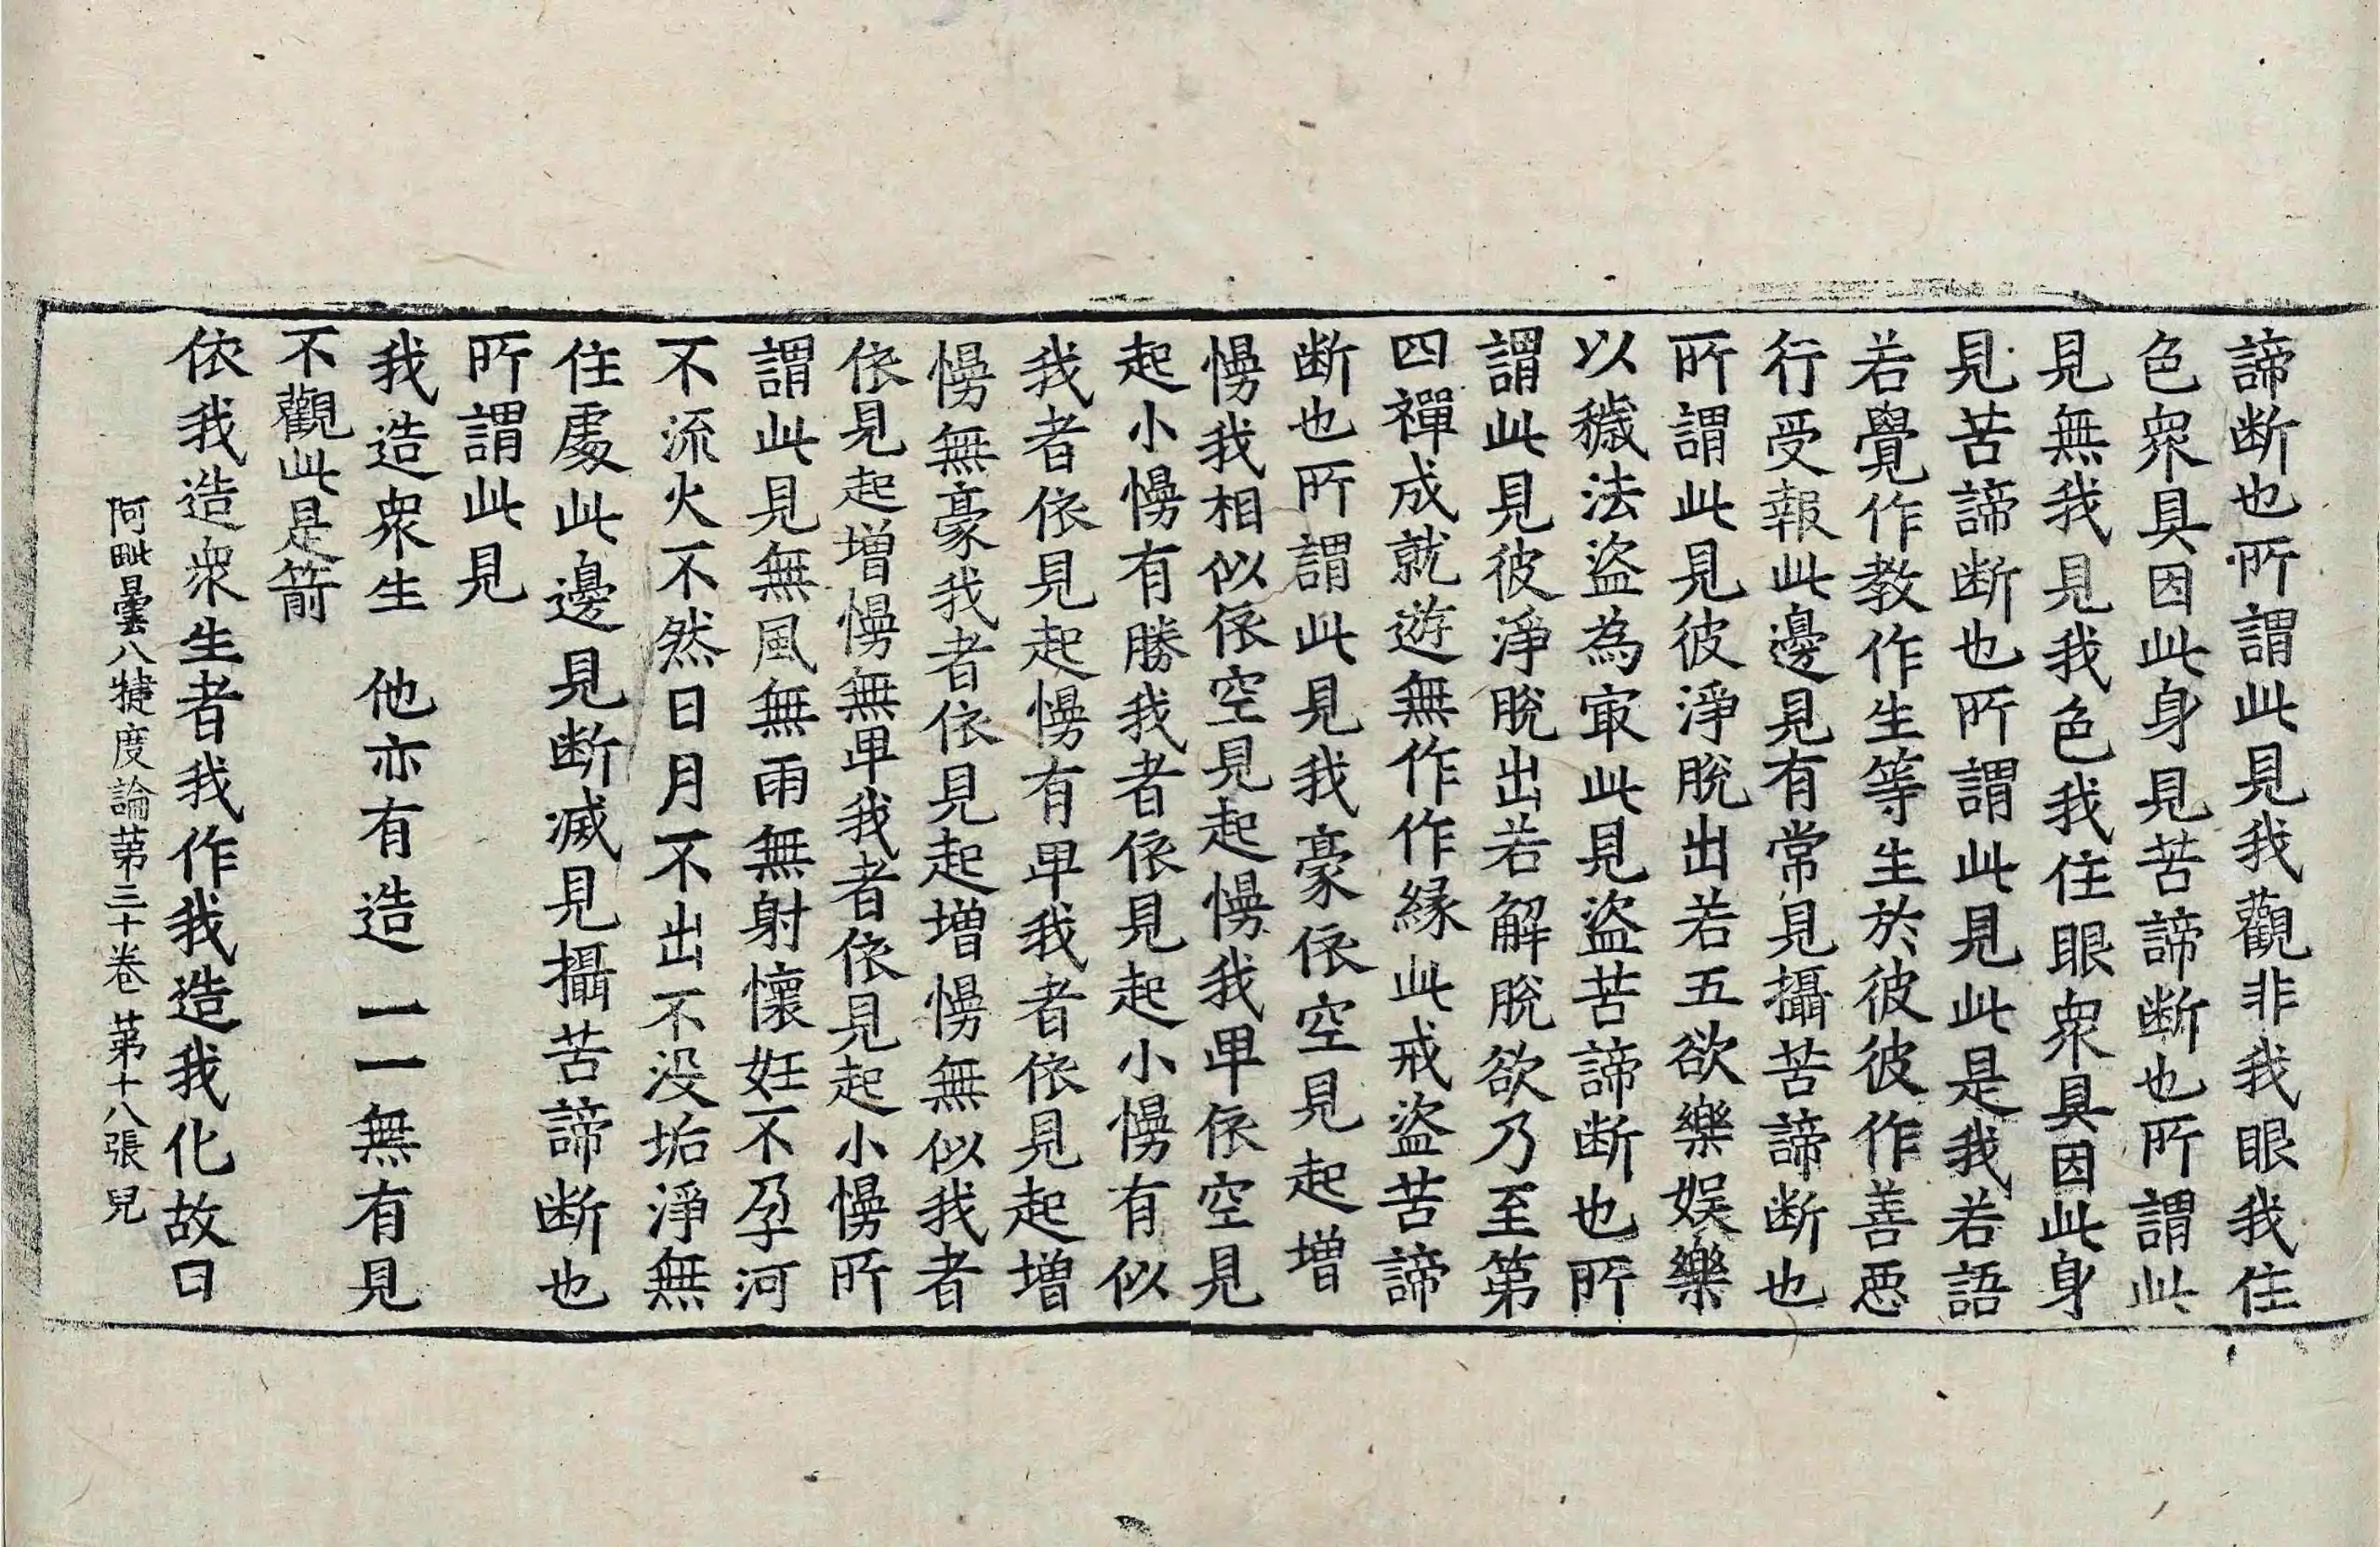 諦断也所謂此見我觀非我眼我住
色衆具因此身見苦諦断也所謂此
見無我見我色我住眼衆具因此身
見苦諦断也所謂此見此是我若語
若覺作教作生等生於彼彼作善惡
行受報此邊見有常見攝苦諦断也
所謂此見彼淨脫出若五欲樂娛樂
以穢法盜為㝡此見盜苦諦断也所
謂此見彼淨脫出若解脫欲乃至第
四禪成就遊無作作縁此戒盜苦諦
断也所謂此見我豪依空見起增
慢我相似依空見起慢我卑依空見
起小慢有勝我者依見起小慢有似
我者依見起慢有卑我者依見起增
慢無豪我者依見起增慢無似我者
依見起增慢無卑我者依見起小慢所
謂此見無風無雨無射懷妊不孕河
不流火不然日月不出不没垢淨無
住處此邊見断滅見攝苦諦断也
所謂此見
我造衆生　他亦有造　一一無有見
不觀此是箭
依我造衆生者我作我造我化故曰
阿毗曇八犍度論苐三十卷　苐十八張　兒